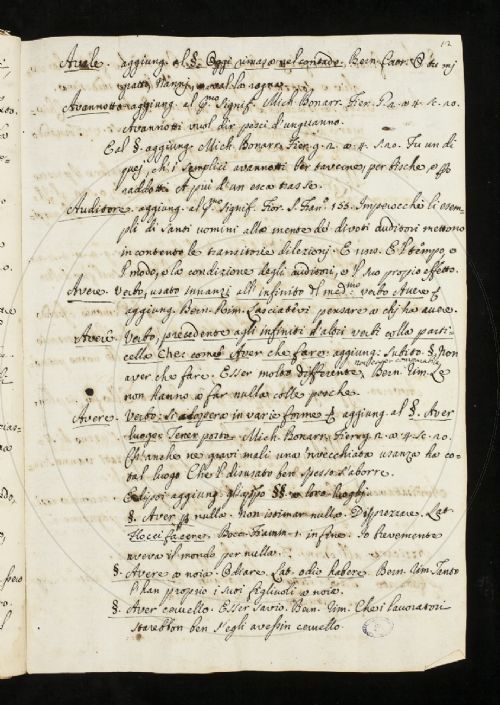 12
Avale. aggiung. al §. Oggi rimaso nel contado. Bern. Catr. O tu mi
gratti Nanni, avval la rogna.
Avannotto aggiung. al pmo signif. Mich. Bonarr. Fier. G. 2. a. 4. sc. 20.
Avannotti vuol dir pesci d'unguanno.
E al §. aggiung. Mich. Bonarr. Fier. g. 2. a. 4. s. 20. Fu un di
quei, ch'i semplici avannotti Per taverne, per bische, e
raddotti A piú d'un esca trasse.
Auditore. aggiung. al pmo signif. Fior. S. Fran. 155. Imperocchè li esem-
pli di Santi uomini alla mente de' divoti auditori mettono
in contento le transitorie dilezioni. E 110. E 'l tempo, e
'l modo, e la condizione degli auditori, e 'l suo proprio effetto.
Avere. Verbo, usato innanzi all'infinito del medmo verbo Avere
aggiung. Bern. Rim. Lasciativi pensare a chi ha avere.
Avere. Verbo, precedente agli infiniti d'altri verbi colla parti-
cella Che: come Aver che fare aggiung: subito. §. Non
aver che fare. Esser molto differente, Bern. Rim. Le
non hanno a far nulla colle pesche.
Avere. Verbo. Si adopera in varie forme aggiung. al §. Aver
luogo: Tener posto. Mich. Bonarr. Fier. g. 2. a. 4. sc. 20.
Ch'anche ne gravi mali una vecchiaba usanza ha co-
tal luogo Che 'l disusato ben spesso s'aborre.
E dipoi aggiung. §§ a loro luoghi.
§. Aver p nulla. Non istimar nulla. Disprezzare. Lat.
Flocci facere. Bocc. Fiamm. 1. in fine. Io lievemente
aveva il mondo per nulla.
§. Avere a noia. Odiare. Lat. odio habere. Bern. Rim. Tanto
ch'han proprio i suoi figliuoli a noia.
§. Aver cervello. Esser savio. Bern. Rim. Che i lavoratori
starebbon ben s'egli avessin cervello.